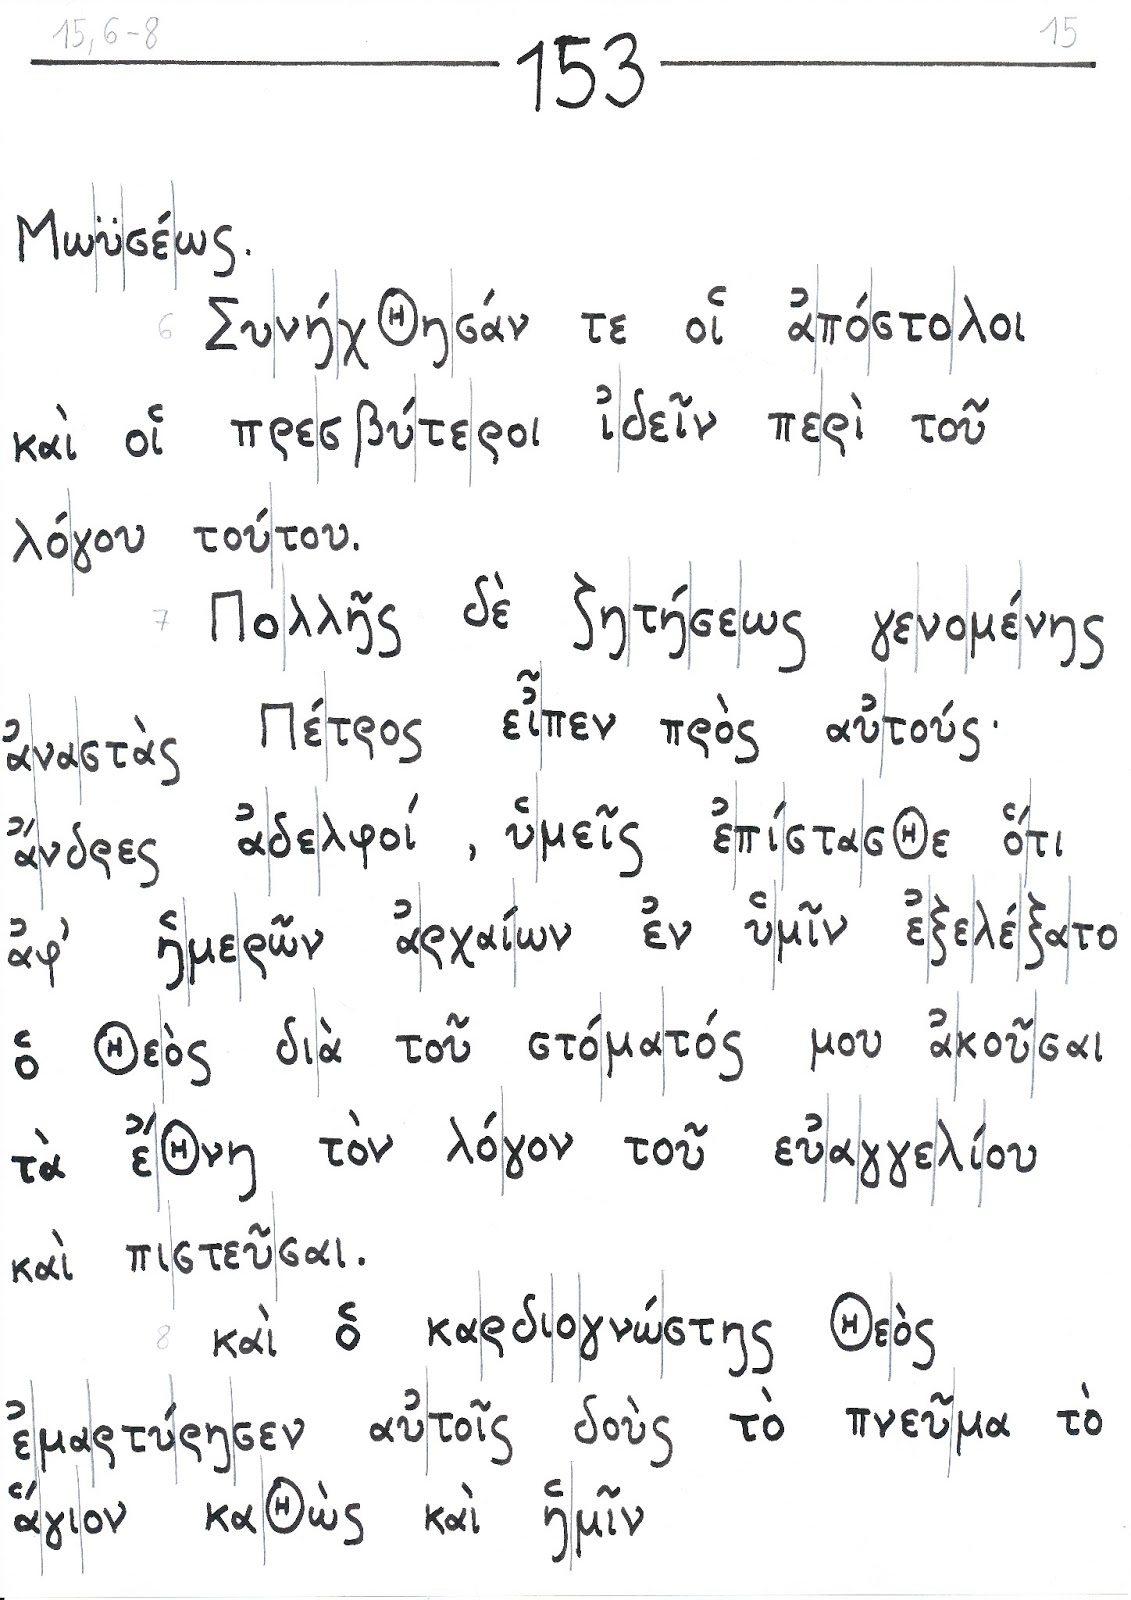 15,6-8 153 15
Μωϋσέως.
6 Συνήχθησάν τε οἱ ἀπόστολοι
καὶ οἱ πρεσβύτεροι ἰδεῖν περὶ τοῦ
λόγου τούτου.
7 Πολλῆς δὲ ζητήσεως γενομένης
ἀναστὰς Πέτρος εἶπεν πρὸς αὐτούς·
ἄνδρες ἀδελφοί, ὑμεῖς ἐπίστασθε ὅτι
ἀφ' ἡμερῶν ἀρχαίων ἐν ὑμῖν ἐξελέξατο
ὁ θεὸς διὰ τοῦ στόματός μου ἀκοῦσαι
τὰ ἔθνη τὸν λόγον τοῦ εὐαγγελίου
καὶ πιστεῦσαι.
8 καὶ ὁ καρδιογνώστης θεὸς
ἐμαρτύρησεν αὐτοῖς δοὺς τὸ πνεῦμα τὸ
ἅγιον καθὼς καὶ ἡμῖν